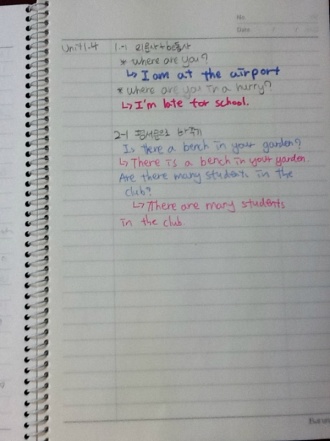 No
Date
Unit 1-4 1-1 의문사+be동사
* Where are you?
↳ I am at the airport
* Where are you in a hurry?
↳ I'm late for school.
2-1 평서문으로 바꾸기
Is there a bench in your garden?
↳ There is a bench in your garden.
Are there many students in the
club?
↳ There are many students
in the club.